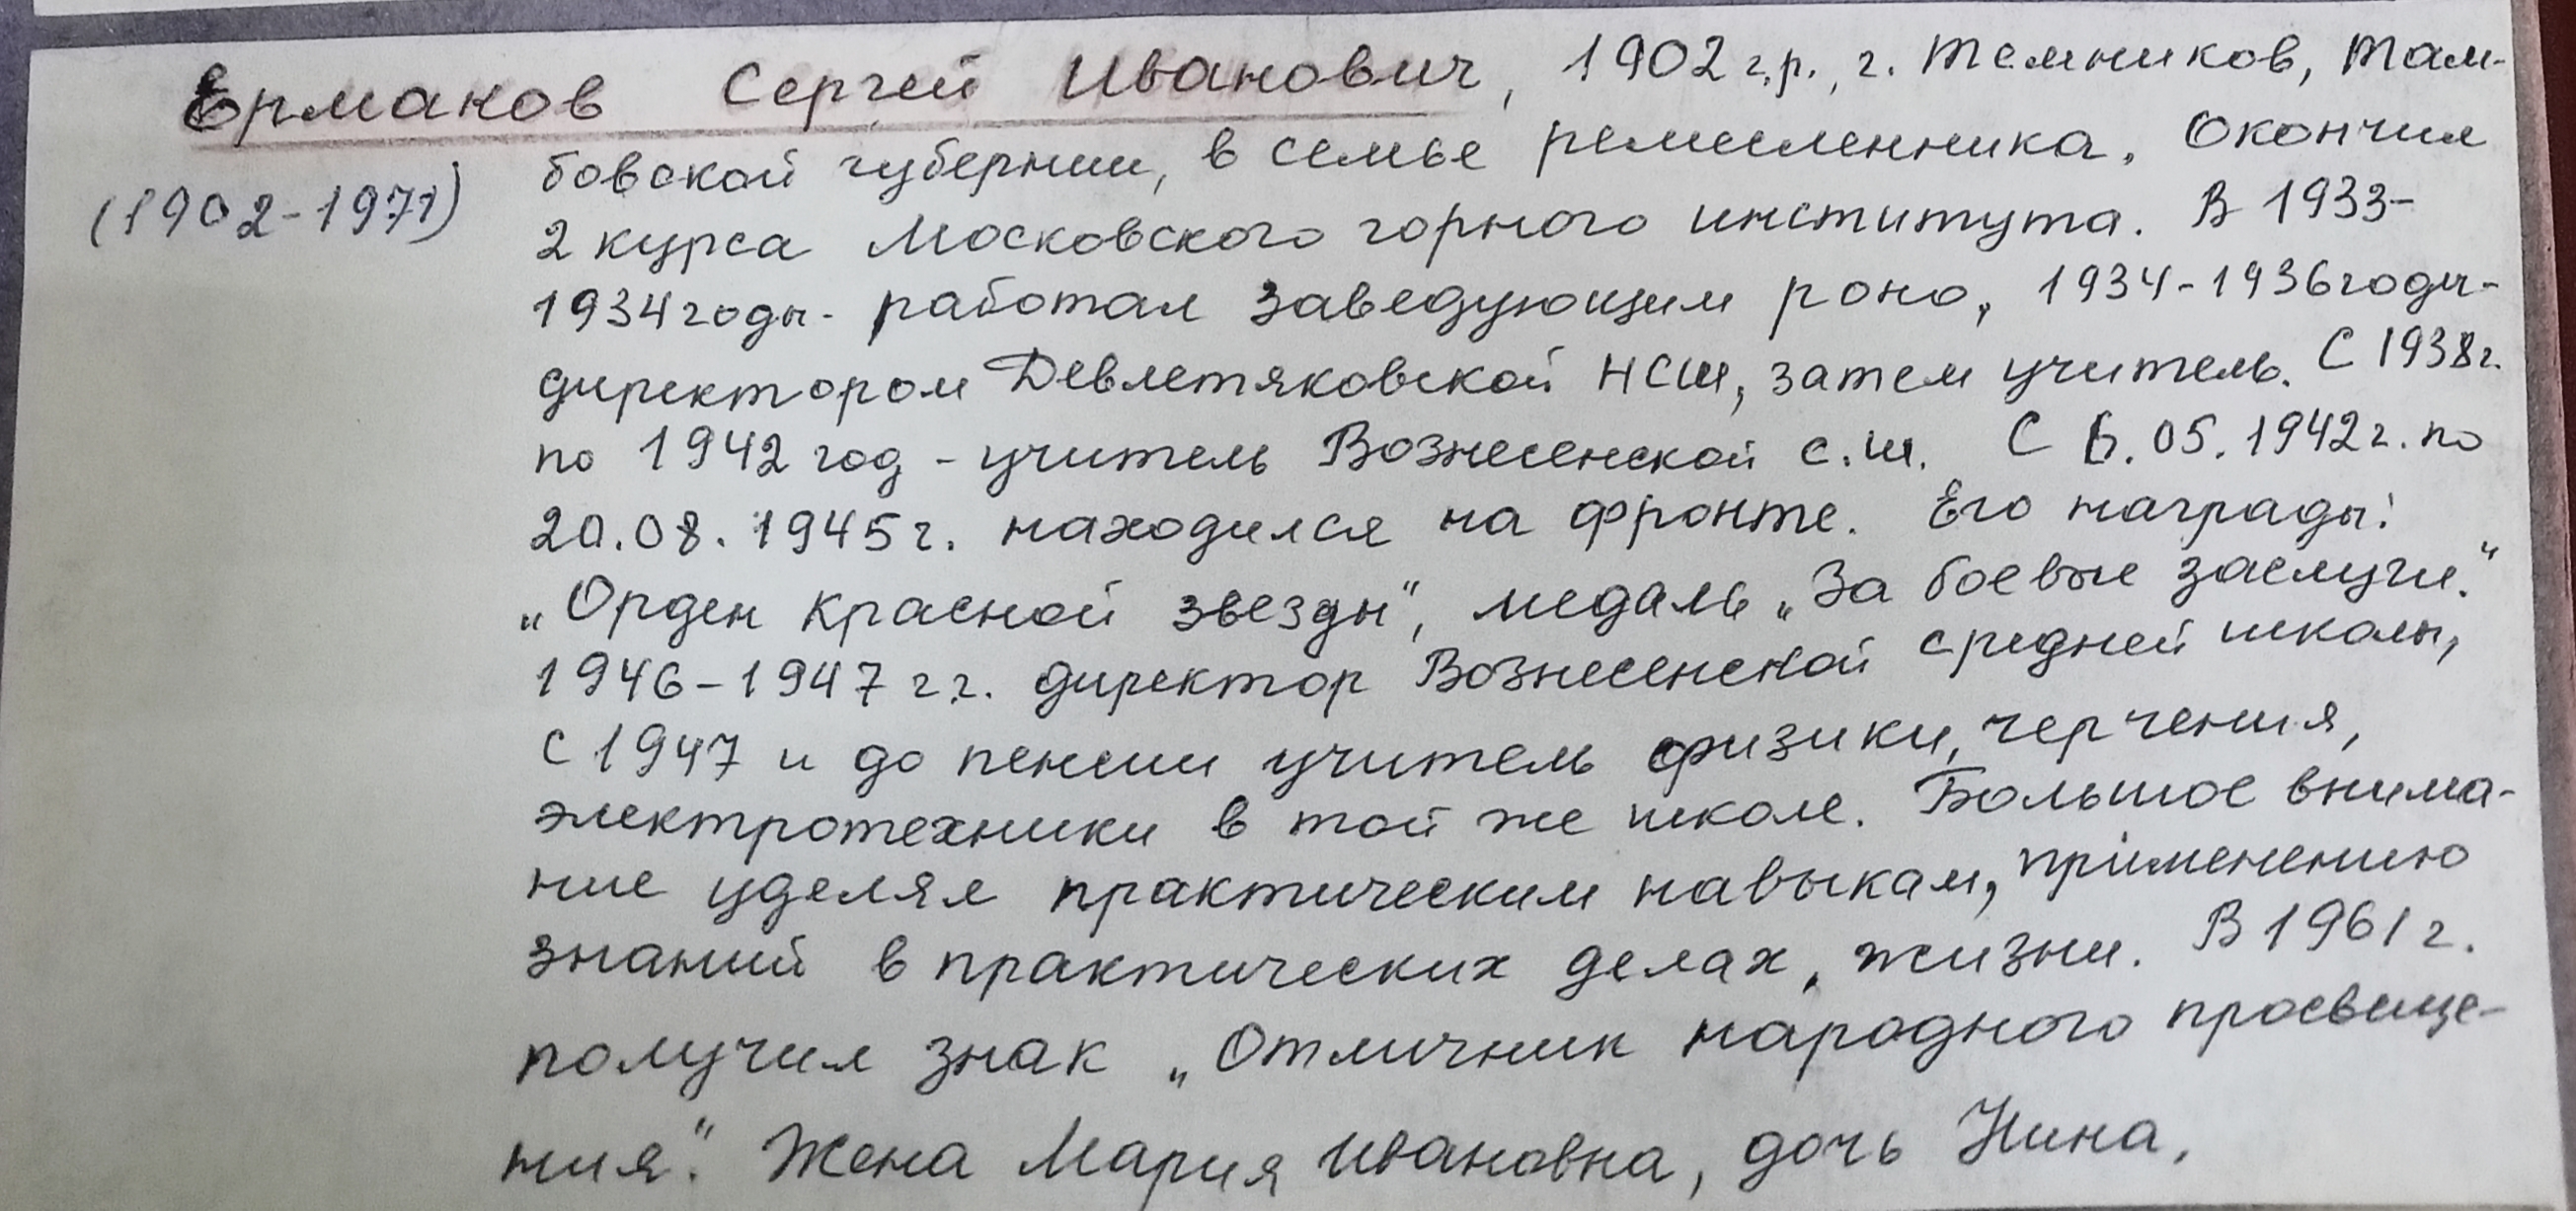 Ермаков Сергей Иванович, 1902 г.р., г. Темников, Там-
бовской губернии, в семье ремесленника. Окончил
(1902-1971)
2 курса Московского горного института. В 1933-
1934 годы - работал заведующим роно, 1934-1936 годы-
директором Девлетяковской НСШ, затем учитель. С 1938г.
по 1942 год - учитель Вознесенской с.ш. С 6.05.1942г. по
20.08.1945г. находился на фронте. Его награды:
„Орден Красной звезды", медаль „За боевые заслуги."
1946-1947 г.г. директор Вознесенской средней школы,
с 1947 и до пенсии учитель физики, черчения,
электротехники в той же школе. Большое внима-
ние уделял практическим навыкам, применению
знаний в практических делах, жизни. В 1961 г.
получил знак „Отличник народного просвеще-
ния". Жена Мария Ивановна, дочь Нина.